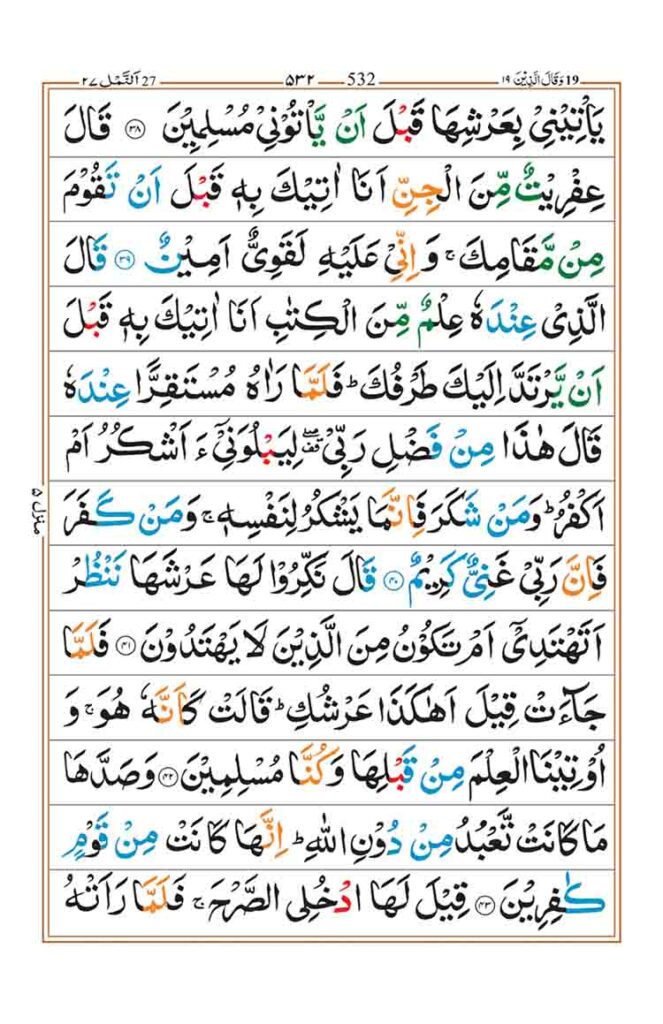 19 وَقَالَ الَّذِیْنَ ۱۹ 532 ۵۳۲ 27 اَلنَّمْل ۲۷
یَاْتِیْنِیْ بِعَرْشِهَا قَبْلَ اَنْ یَّاْتُوْنِیْ مُسْلِمِیْنَ ۝۳۸ قَالَ
عِفْرِیْتٌ مِّنَ الْجِنِّ اَنَا اٰتِیْكَ بِهٖ قَبْلَ اَنْ تَقُوْمَ
مِنْ مَّقَامِكَ ۚ وَاِنِّیْ عَلَیْهِ لَقَوِیٌّ اَمِیْنٌ ۝۳۹ قَالَ
الَّذِیْ عِنْدَهٗ عِلْمٌ مِّنَ الْكِتٰبِ اَنَا اٰتِیْكَ بِهٖ قَبْلَ
اَنْ یَّرْتَدَّ اِلَیْكَ طَرْفُكَ ؕ فَلَمَّا رَاٰهُ مُسْتَقِرًّا عِنْدَهٗ
قَالَ هٰذَا مِنْ فَضْلِ رَبِّیْ ۖ۫ لِیَبْلُوَنِیْۤ ءَاَشْكُرُ اَمْ
اَكْفُرُ ؕ وَمَنْ شَكَرَ فَاِنَّمَا یَشْكُرُ لِنَفْسِهٖ ۚ وَمَنْ كَفَرَ
فَاِنَّ رَبِّیْ غَنِیٌّ كَرِیْمٌ ۝۴۰ قَالَ نَكِّرُوْا لَهَا عَرْشَهَا نَنْظُرْ
اَتَهْتَدِیْۤ اَمْ تَكُوْنُ مِنَ الَّذِیْنَ لَا یَهْتَدُوْنَ ۝۴۱ فَلَمَّا
جَآءَتْ قِیْلَ اَهٰكَذَا عَرْشُكِ ؕ قَالَتْ كَاَنَّهٗ هُوَ ۚ وَ
اُوْتِیْنَا الْعِلْمَ مِنْ قَبْلِهَا وَكُنَّا مُسْلِمِیْنَ ۝۴۲ وَصَدَّهَا
مَا كَانَتْ تَّعْبُدُ مِنْ دُوْنِ اللّٰهِ ؕ اِنَّهَا كَانَتْ مِنْ قَوْمٍ
كٰفِرِیْنَ ۝۴۳ قِیْلَ لَهَا ادْخُلِی الصَّرْحَ ۚ فَلَمَّا رَاَتْهُ
منزل ۵